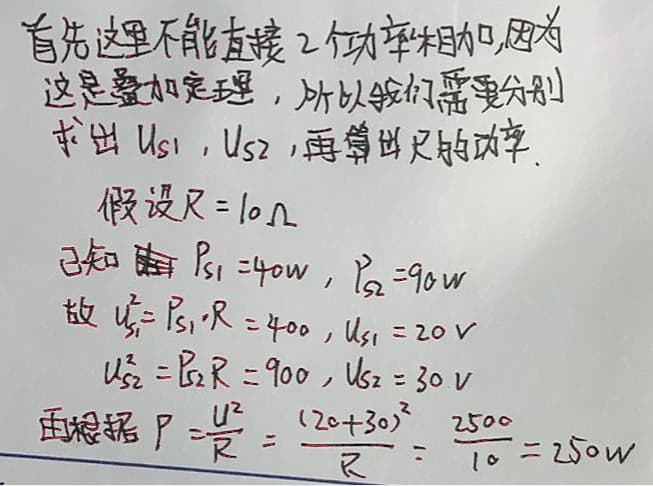 首先这里不能直接2个功率相加,因为
这是叠加定理,所以我们需要分别
求出 Us1,Us2,再算出R的功率.
假设R=10Ω
已知 Ps1=40w,Ps2=90w
故 Us1²=Ps1·R=400,Us1=20V
Us2²=Ps2R=900,Us2=30V
再根据 P=U²/R=(20+30)²/R=2500/10=250w